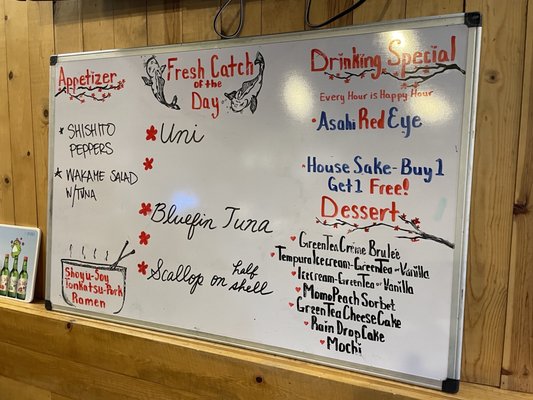 Appetizer
SHISHITO
PEPPERS
WAKAME SALAD
W/TUNA
Shoyu-Soy
TonKatsu-Pork
Ramen
Fresh Catch
of the
Day
Uni
Bluefin Tuna
Scallop on half
shell
Drinking Special
Every Hour is Happy Hour
Asahi Red Eye
House Sake-Buy 1
Get 1 Free!
Dessert
GreenTea Crème Brulee
Tempura Icecream-GreenTea or Vanilla
Icecream-GreenTea or Vanilla
Momo Peach Sorbet
GreenTea CheeseCake
Rain Drop Cake
Mochi